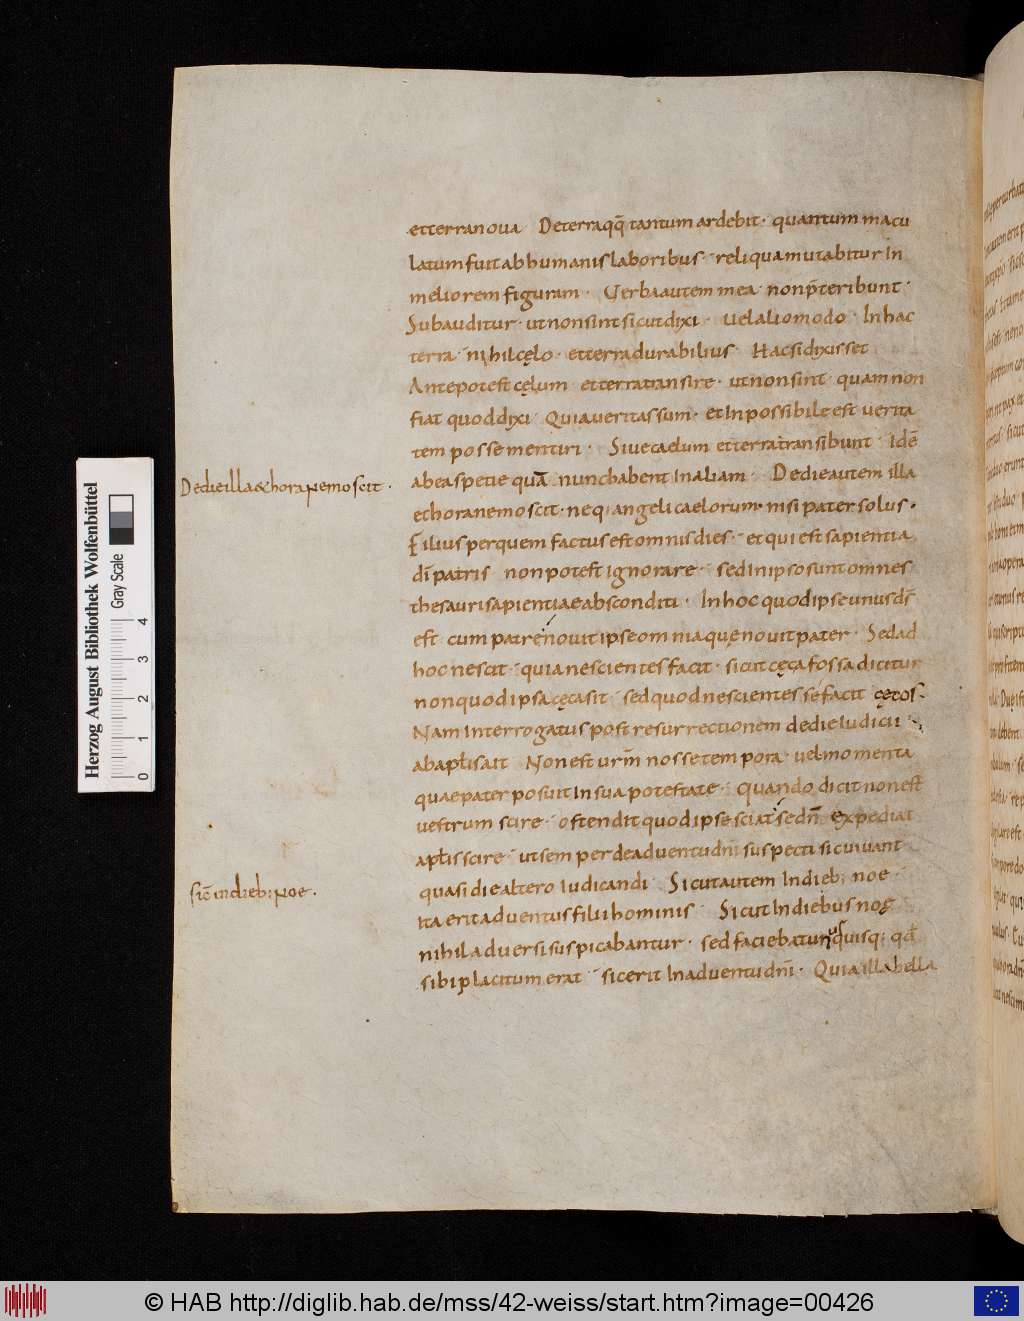 et terra noua Deterraqq̄ tantum ardebit· quantum macu
latum fuit ab humanis laboribus· reliqua mutabitur In
meliorem figuram· Uerba autem mea· non p̄teribunt·
Subauditur· ut non sint sicut dixi· Uel alio modo· In hac
terra· nihil cęlo· et terra durabilius· Hac si dixisset
Ante potest cęlum et terra transire· ut non sint· quam non
fiat quod dixi Quia ueritas sum· et Inpossibile est uerita
tem posse mentiri· Siue caelum et terra transibunt· Idē
ab ea spetie quā nunc habent In aliam· De die autem illa
Dedieilla&hora nemo scit·
et hora nemo scit· neq; angeli caelorum· nisi pater solus·
Filius per quem factus est omnis dies· et qui est sapientia
dī patris non potest ignorare· sed In ipso sunt omnes
thesauri sapientiae absconditi· In hoc quod ipse unus dś
est cum patre nouit ipse omnia quę nouit pater· Sed ad
hoc nescit· quia nescientes facit· sicut cęca fossa dicitur
non quod ipsa cęca sit· sed quod nescientes se facit cęcos·
Nam Interrogatus post resurrectionem de die Iudicii
ab apƚis ait Non est urm̄ nosse tempora· uel momenta
quae pater posuit In sua potestate· quando dicit non est
uestrum scire· ostendit quod ipse sciat· sed n̄ expediat
apƚis scire· ut semper de aduentu dn̄i suspecti sic uiuant
quasi die altero Iudicandi Sicut autem In dieb; noe
sic̄ in dieb; noe·
Ita erit aduentus filii hominis Sicut In diebus noę
nihil aduersi suspicabantur· sed faciebat unusquisq; qd̄
sibi placitum erat· sic erit In aduentu dn̄i· Quia illa bella
Herzog August Bibliothek Wolfenbüttel
Gray Scale
0 1 2 3 4
© HAB http://diglib.hab.de/mss/42-weiss/start.htm?image=00426